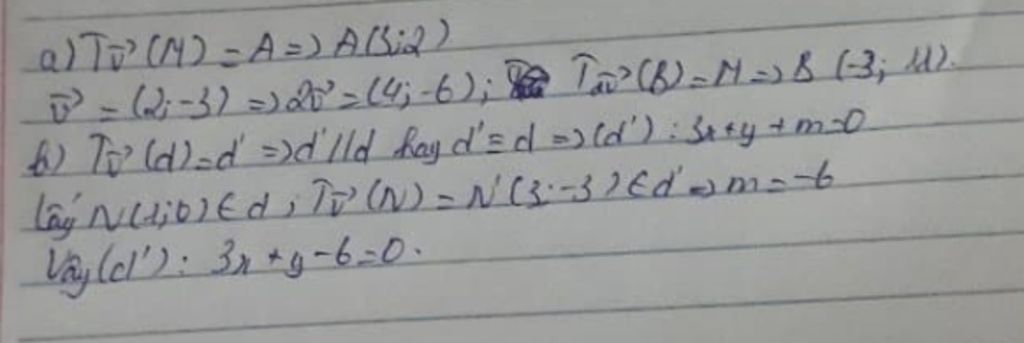 a) Tv⃗ (M) = A => A(3;2)
v⃗ = (2;-3) => 2v⃗ = (4;-6); T2v⃗ (B) = M => B (-3; 11).
b) Tv⃗ (d) = d' => d' // d hay d' ≡ d => (d') : 3x + y + m = 0
Lấy N(1;0) ∈ d, Tv⃗ (N) = N'(3;-3) ∈ d' => m = -6
Vậy (d') : 3x + y - 6 = 0.